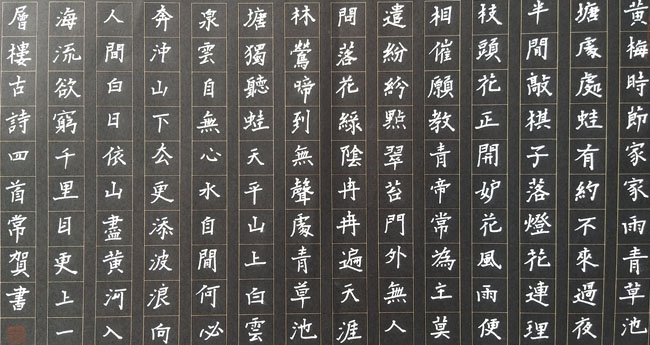 黃梅時節家家雨青草池
塘處處蛙有約不來過夜
半閒敲棋子落燈花連理
枝頭花正開妒花風雨便
相催願教青帝常為主莫
遣紛紛點翠苔門外無人
問落花綠陰冉冉遍天涯
林鶯啼到無聲處青草池
塘獨聽蛙天平山上白雲
泉雲自無心水自閒何必
奔沖山下去更添波浪向
人間白日依山盡黃河入
海流欲窮千里目更上一
層樓古詩四首常賀書